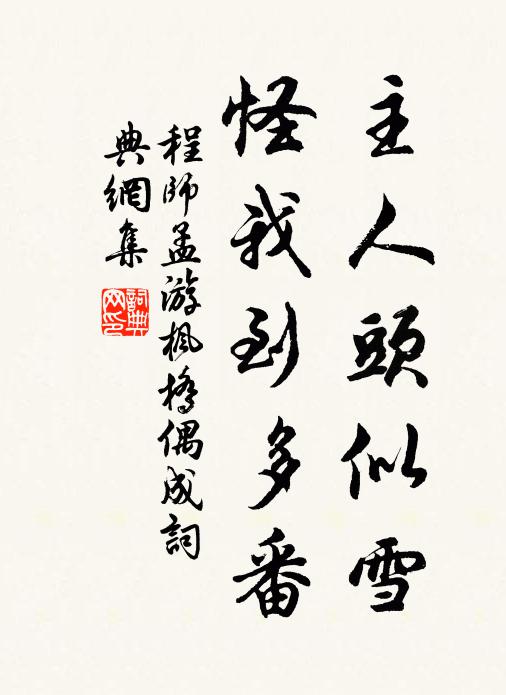 主人頭似雪
怪我到多番
程師孟游楓橋偶成詞
典網集
詞典网印